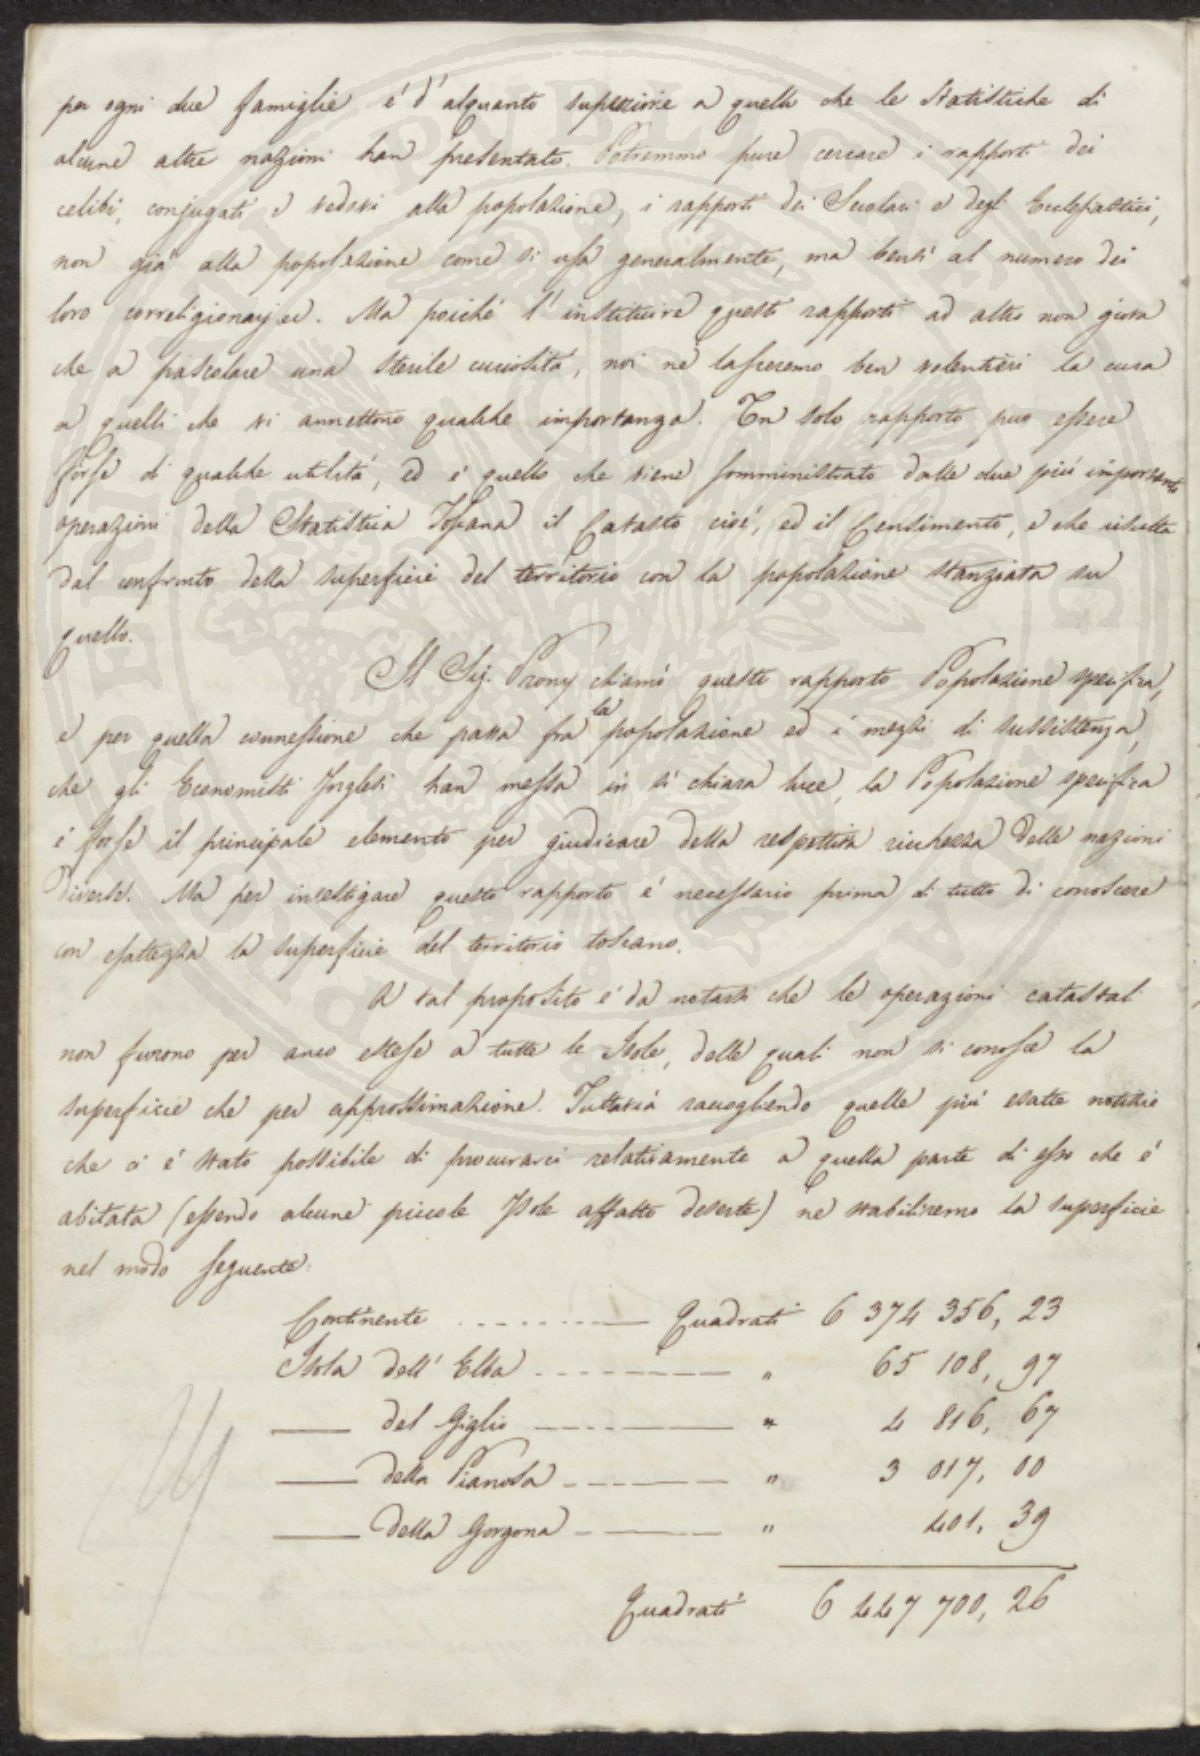 per ogni due famiglie é d'alquanto superiore a quella che le Statistiche di
alcune altre nazioni han presentato. Potremmo pure cercare i rapporti dei
celibi, conjugati e vedovi alla popolazione, i rapporti dei Secolari e degli Ecclesiastici,
non giá alla popolazione come si usa generalmente, ma bensí al numero dei
loro correligionarj ec. Ma poiché l'instituire questi rapporti ad altro non giova
che a pascolare una sterile curiositá, noi ne lasceremo ben volentieri la cura
a quelli che vi annettono qualche importanza. Un solo rapporto puo essere
forse di qualche utilitá, ed é quello che viene somministrato dalle due piú importanti
operazioni della Statistica Toscana il Catasto cioé, ed il Censimento, e che risulta
dal confronto della superficie del territorio con la popolazione stanziata su
quello.
Il Sig. Prony chiamó questo rapporto Popolazione specifica,
e per quella connessione che passa fra la popolazione ed i mezzi di sussistenza,
che gli Economisti Inglesi han messa in sí chiara luce, la Popolazione specifica
é forse il principale elemento per giudicare della respettiva ricchezza delle nazioni
diverse. Ma per investigare questo rapporto é necessario prima di tutto di conoscere
con esattezza la superficie del territorio toscano.
A tal proposito é da notarsi che le operazioni catastali
non furono per anco estese a tutte le Isole, delle quali non si conosce la
superficie che per approssimazione. Tuttaviá raccogliendo quelle piú esatte notizie
che ci é stato possibile di procurarci relativamente a quella parte di esse che é
abitata (essendo alcune piccole Isole affatto deserte) ne stabiliremo la superficie
nel modo seguente:
Continente ........ Quadrati 6 374 356, 23
Isola dell'Elba -------- " 65 108, 97
—— del Giglio -------- " 4 816, 67
—— della Pianosa -------- " 3 017, 00
—— della Gorgona -------- " 401, 39
Quadrati 6 447 700, 26